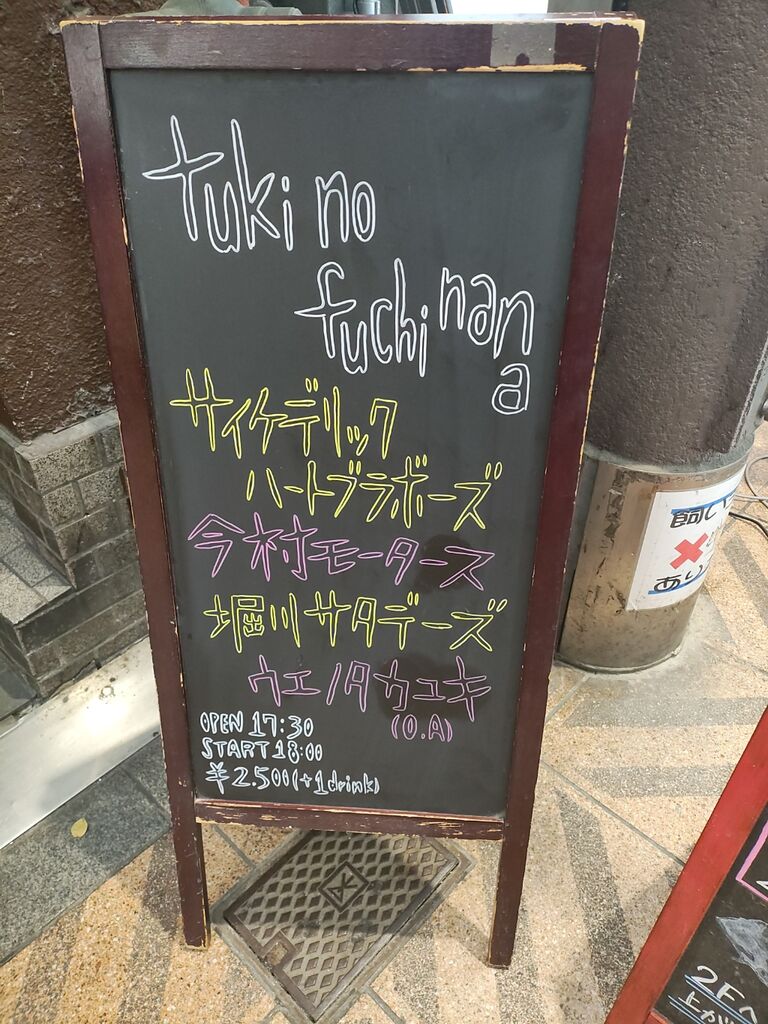 tuki no
fuchi nana
サイケデリック
ハートブラボーズ
今村モータース
堀川サタデーズ
ウエノタカユキ
(O.A)
OPEN 17:30
START 18:00
¥2.500(+1drink)
飼い
あり
2Fへ